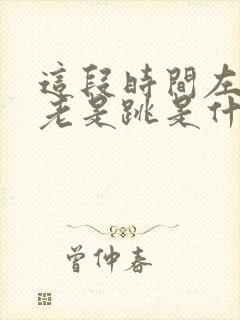 這段時間左
老是跳是什
曾仲春